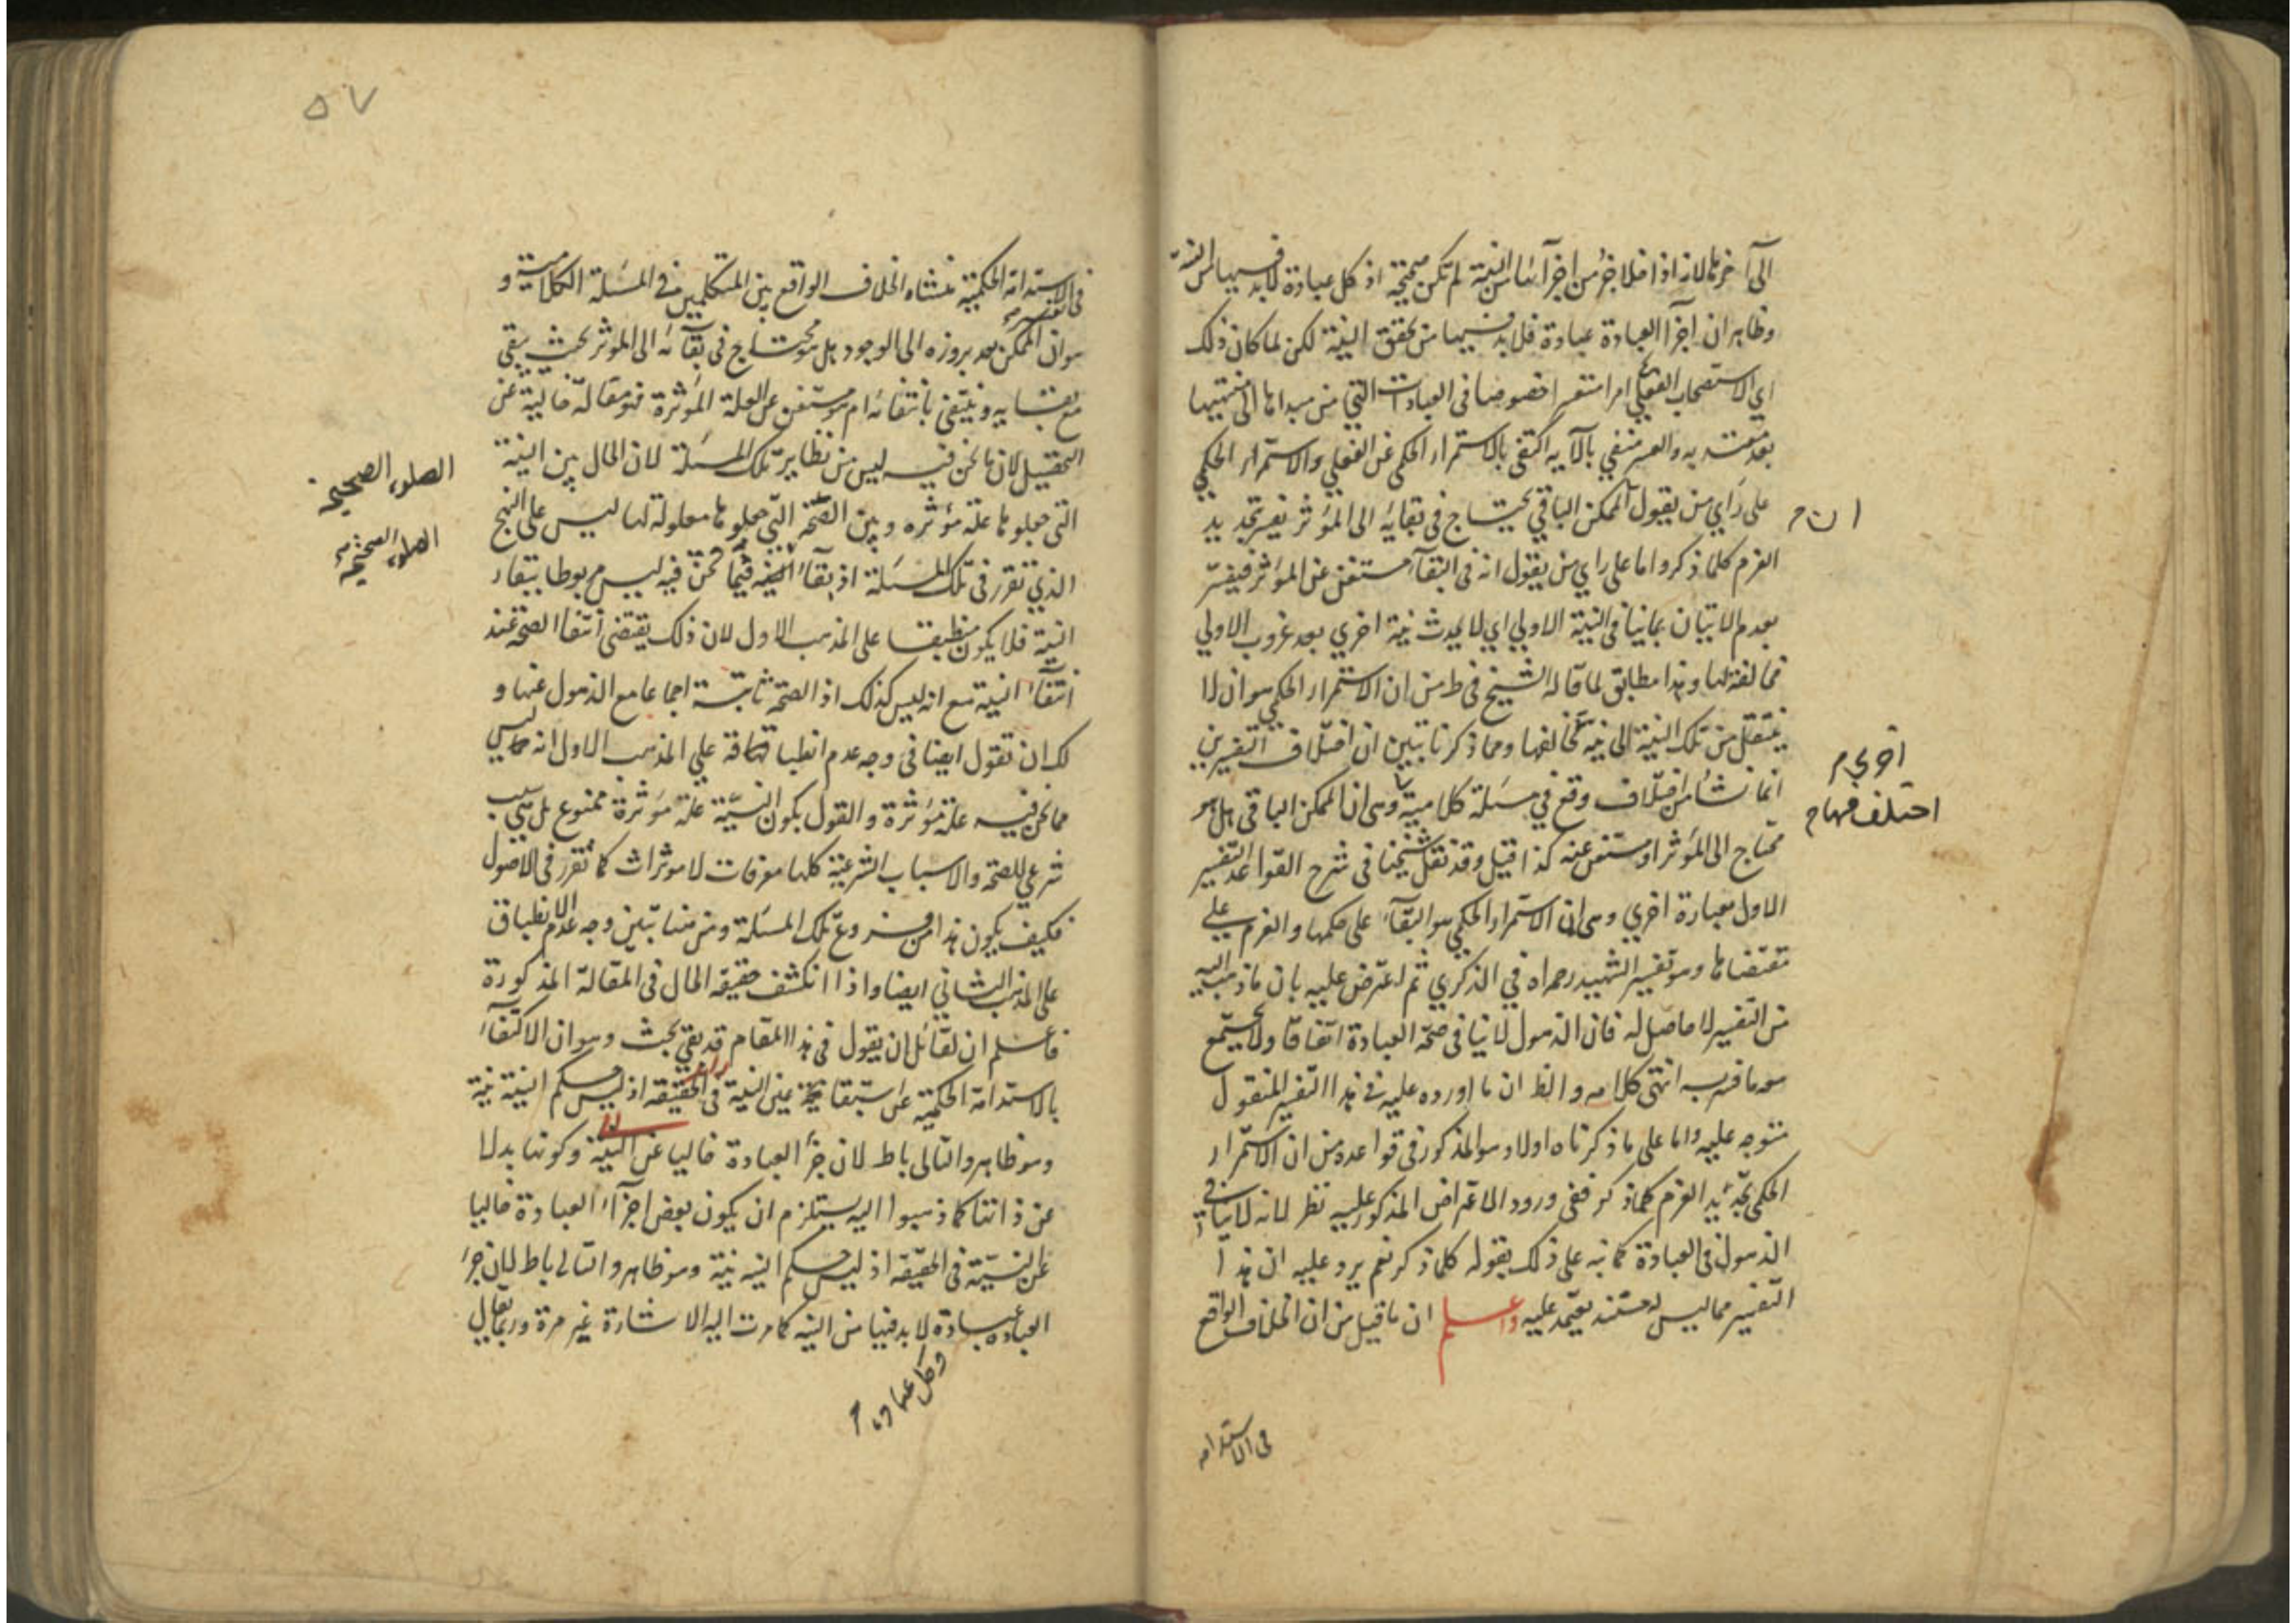 الى آخرها لانه اذا خلا جزء من اجزائها من النية لم تكن صحيحة اذ كل عبادة لابد فيها من النية
وظاهر ان اجزآ العبادة عبادة فلابد فيها من تحقق النية لكن لما كان ذلك
اي الاستصحاب الفعلي امرا متعسرا خصوصا في العبادات التي من مبداها الى منتهيها
بعد معتد به والعسر منفي بالآية اكتفى بالاستمرار الحكمي عن الفعلي والاستمرار الحكمي
على رأي من يقول الممكن الباقي يحتاج في بقائه الى المؤثر يفسر بتجديد
ان
العزم كلما ذكر واما على راي من يقول انه في البقآء مستغن عن المؤثر فيفسر
بعدم الاتيان بما ينافي النية الاولي اي لا يحدث نية اخري بعد غروب الاولي
مخالفة لها وهذا مطابق لما قاله الشيخ في ط من ان الاستمرار الحكمي هو ان لا
ينتقل من تلك النية الى نية تخالفها ومما ذكرنا تبين ان اختلاف التفسيرين
اخري
انما نشأ من اختلاف وقع في مسئلة كلامية وهي ان الممكن الباقي هل هو
اختلف فيها
محتاج الى المؤثر او مستغن عنه كذا قيل وقد نقل شيخنا في شرح القواعد التفسير
الاول بعبارة اخري وهي ان الاستمرار الحكمي هو البقآء على حكمها والعزم علي
مقتضاها وهو تفسير الشهيد رحمه الله في الذكري ثم اعترض عليه بان ما ذهب اليه
من التفسير لا حاصل له فان الذهول لا ينافي صحة العبادة اتفاقا ولا يجتمع
هو ما فسر به انتهى كلامه والظ ان ما اورده عليه في هذا التفسير المنقول
متوجه عليه واما على ما ذكرناه اولا وهو المذكور في قواعده من ان الاستمرار
الحكمي تجديد العزم كلما ذكر ففي ورود الاعتراض المذكور عليه نظر لانه لا ينافي
الذهول في العبادة كما نبه على ذلك بقوله كلما ذكر نعم يرد عليه ان هذا
التفسير مما ليس له مستند يعتمد عليه واعلم ان ما قيل من ان الخلاف الواقع
في الاستدامه
٥٧
في الاستدامة الحكمية منشاه الخلاف الواقع بين المتكلمين في المسئلة الكلامية و
هو ان الممكن بعد بروزه الى الوجود هل هو محتاج في بقآئه الى المؤثر بحيث يبقي
مع بقائه وينتفي بانتفائه ام هو مستغن عن العلة المؤثرة فهو مقالة خالية عن
التحصيل لان ما نحن فيه ليس من نظاير تلك المسئلة لان الحال بين النية
الصلوة الصحيحة
التي جعلوها علة مؤثرة وبين الصحة التي جعلوها معلولة لها ليس علي النهج
الصلوة الصحيحة
الذي تقرر في تلك المسئلة اذ بقآء الصحة فيما نحن فيه ليس مربوطا ببقاء
النية فلا يكون منطبقا على المذهب الاول لان ذلك يقتضي انتفا الصحة عند
انتفآء النية مع انه ليس كذلك اذ الصحة ثابتة اجماعا مع الذهول عنها و
لك ان تقول ايضا في وجه عدم انطباقه علي المذهب الاول انه ليس
مما نحن فيه علة مؤثرة والقول بكون النية علة مؤثرة ممنوع بل هي سبب
شرعي للصحة والاسباب الشرعية كلها معرفات لا موثرات كما تقرر في الاصول
فكيف يكون هذا من فروع تلك المسئلة ومن هنا تبين وجه عدم الانطباق
على المذهب الثاني ايضا واذا انكشف حقيقة الحال في المقالة المذكورة
فاعلم ان لقائل ان يقول في هذا المقام قد بقي بحث وهو ان الاكتفآء
بالاستدامة الحكمية عن استبقا عين النية في الحقيقة اذ ليس حكم النية نية
وهو ظاهر والتالى باط لان جزء العبادة خاليا عن النية وكونها بدلا
عن ذاتها كما ذهبوا اليه يستلزم ان يكون بعض اجزآء العبادة خاليا
عن النية في الحقيقة اذ ليس حكم النية نية وهو ظاهر والتالي باط لان جزء
العبادة عبادة لا بد فيها من النية كما مرت اليه الاشارة غير مرة وربما يقال
وكل عبادة